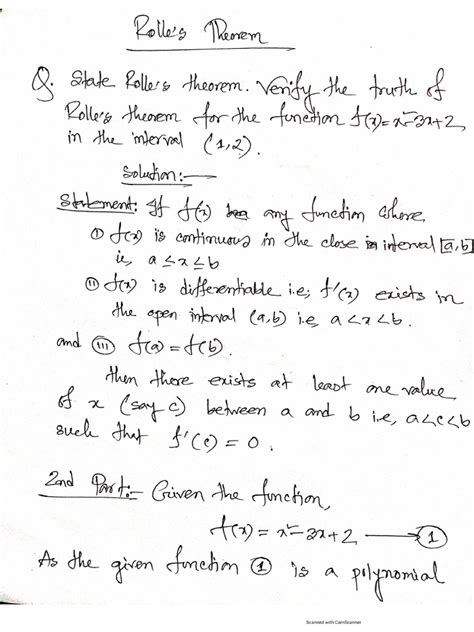 Rolle's Theorem
Q. State Rolle's theorem. Verify the truth of
Rolle's theorem for the function f(x)=x²-3x+2,
in the interval (1,2).
Solution:—
Statement: If f(x) be any function where
(i) f(x) is continuous in the close in interval [a,b]
ie, a≤x≤b
(ii) f(x) is differentiable i.e; f'(x) exists in
the open interval (a,b) i.e, a<x<b.
and (iii) f(a)=f(b).
then there exists at least one value
of x (say c) between a and b i.e, a<c<b
such that f'(c) = 0.
2nd Part:- Given the function,
f(x) = x²-3x+2 → (1)
As the given function (1) is a polynomial
Scanned with CamScanner